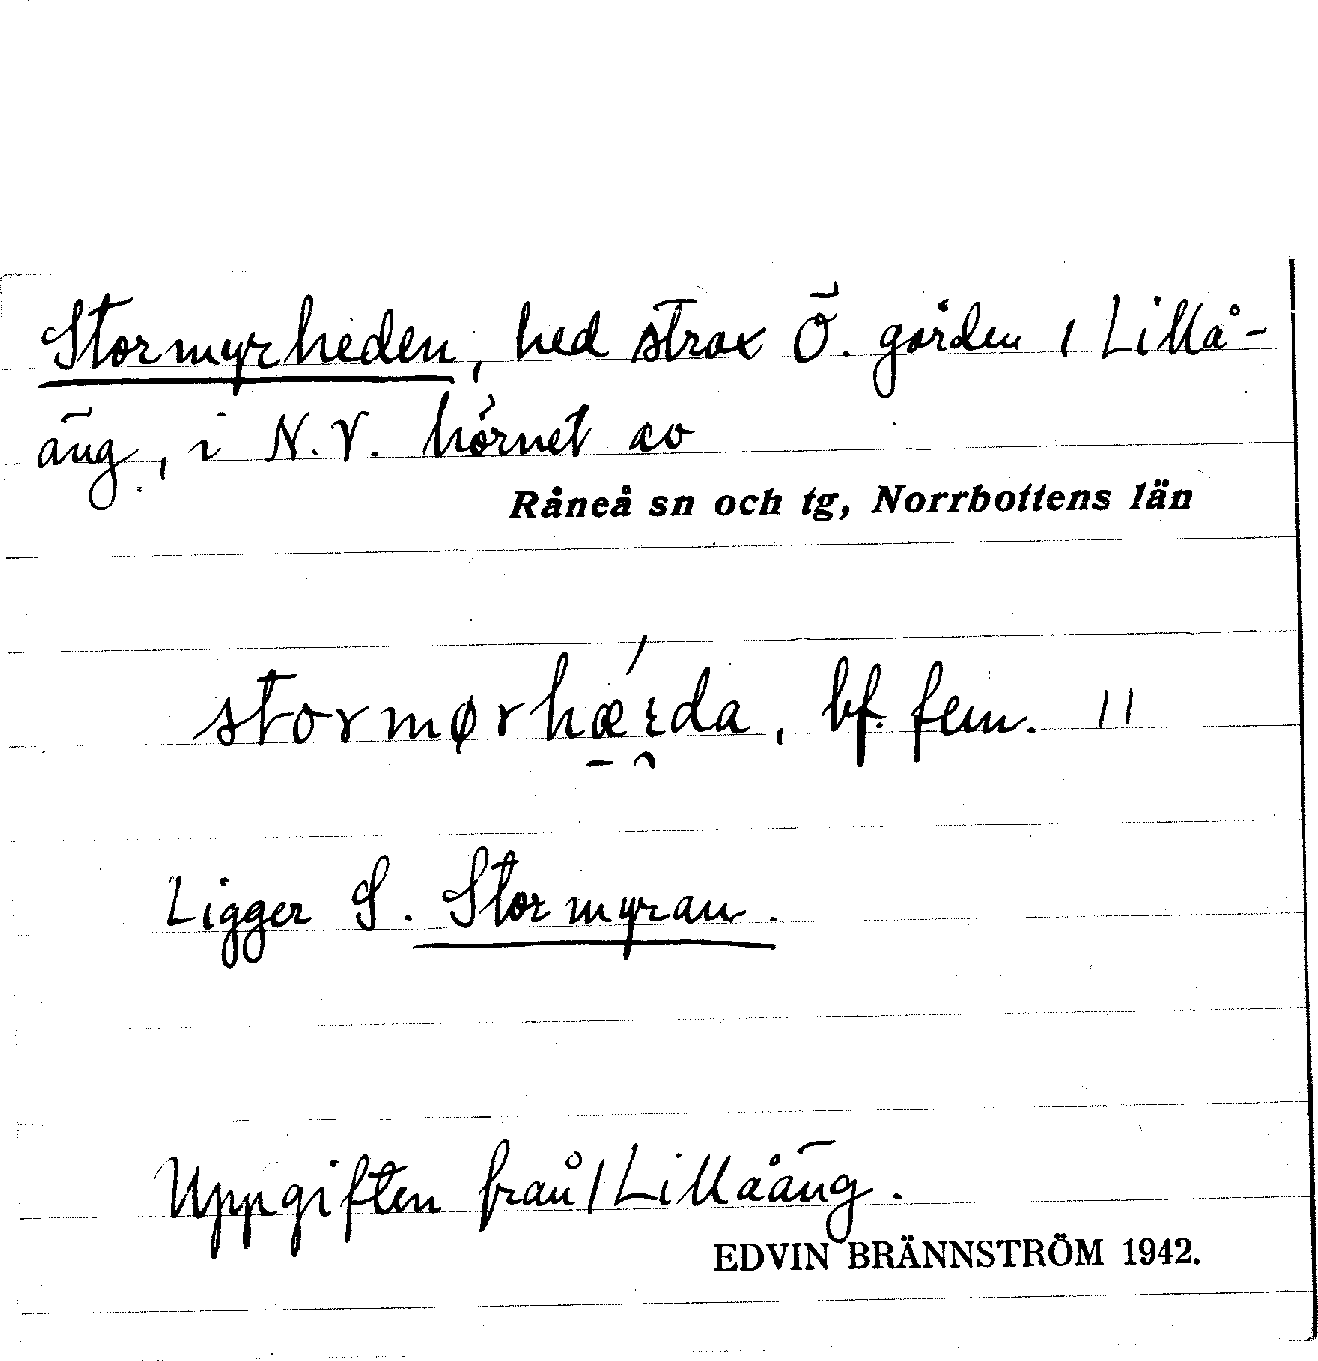 Stormyrheden, hed strax Ö. gården 1 Lillå-
äng, i N.V. hörnet av
Råneå sn och tg, Norrbottens län
stormørhǽ̱ɾda, bf. fem. 11
Ligger S. Stormyran.
Uppgiften från 1 Lillåäng.
EDVIN BRÄNNSTRÖM 1942.